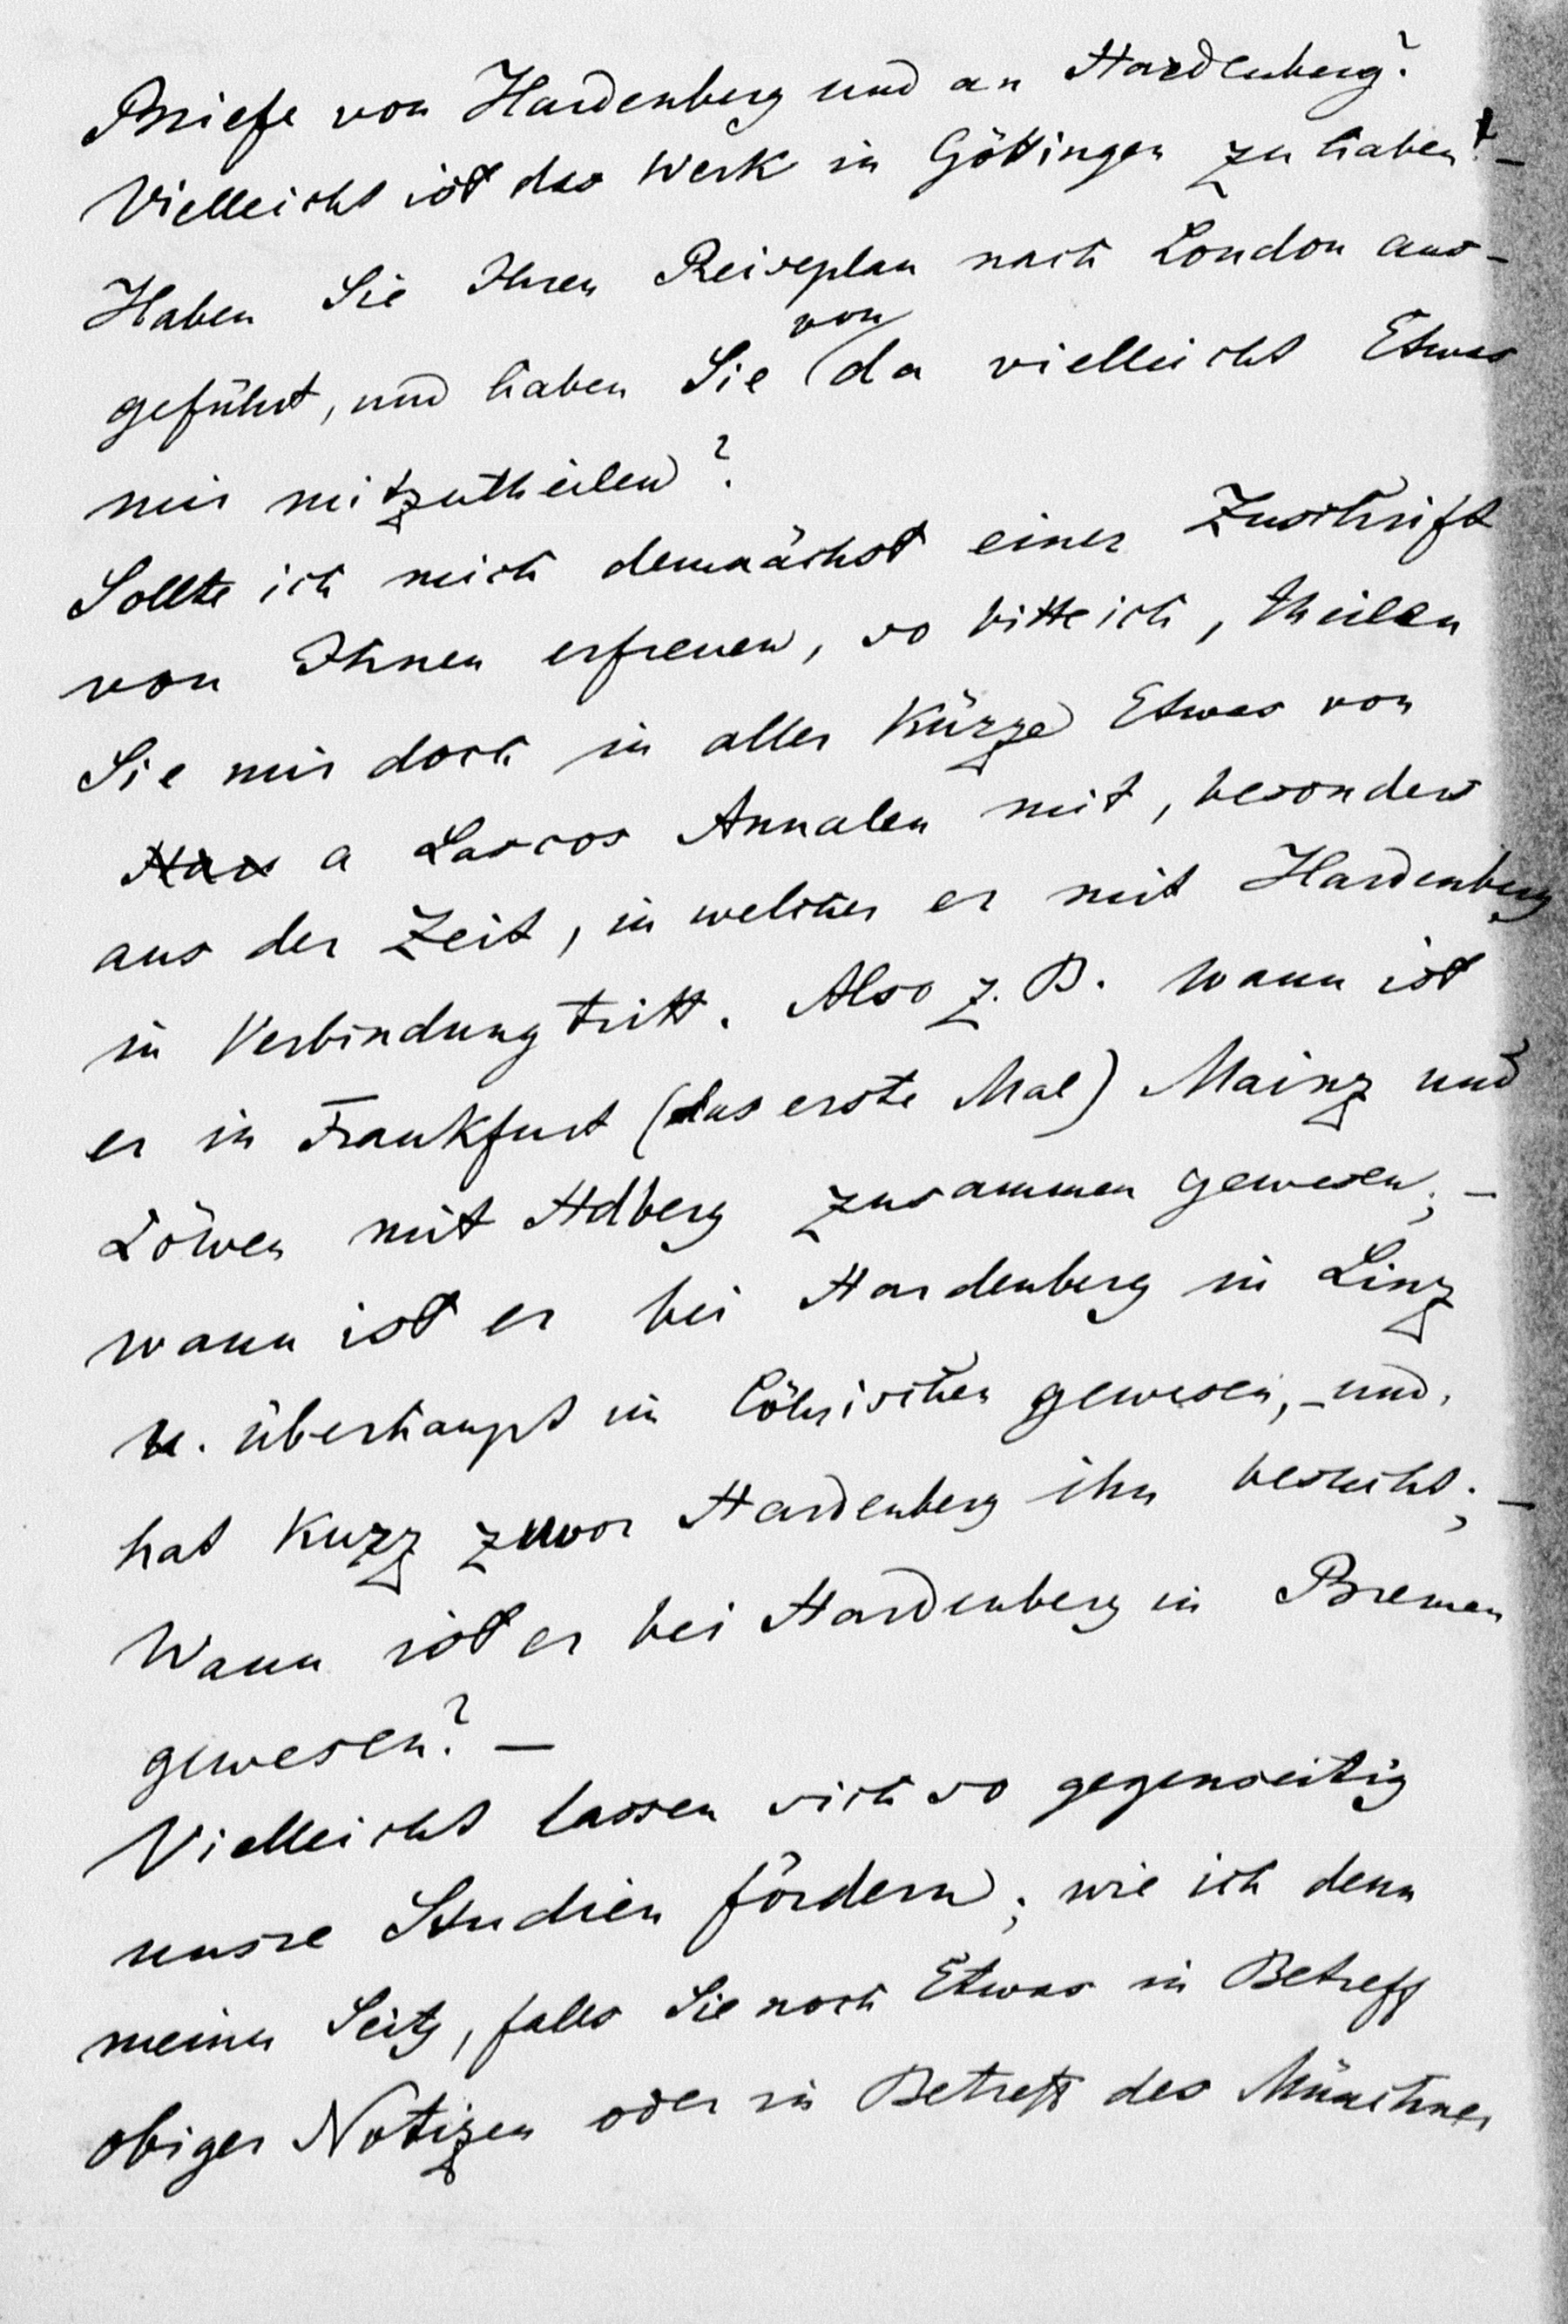 Briefe von Hardenberg und an Hardenberg?
Vielleicht ist das Werk in Göttingen zu haben? –
Haben Sie Ihren Reiseplan nach London aus-
geführt, und haben Sie von da vielleicht Etwas
mir mitzutheilen?
Sollte ich mich demnächst einer Zuschrift
von Ihnen erfreuen, so bitte ich, theilen
Sie mir doch in aller Kürze Etwas von
a Lascos Annalen mit, besonders
aus der Zeit, in welcher er mit Hardenberg
in Verbindung tritt. Also z. B. wann ist
er in Frankfurt (das erste Mal) Mainz und
Löwen mit Hdberg zusammen gewesen; –
wann ist er bei Hardenberg in Linz
u. überhaupt im Cölnischen gewesen, – und
hat kurz zuvor Hardenberg ihn besucht; –
Wann ist er bei Hardenberg in Bremen
gewesen? –
Vielleicht lassen sich so gegenseitig
unsre Studien fördern; wie ich denn
meiner Seits, falls Sie noch Etwas in Betreff
obiger Notizen oder in Betreff des Münchner